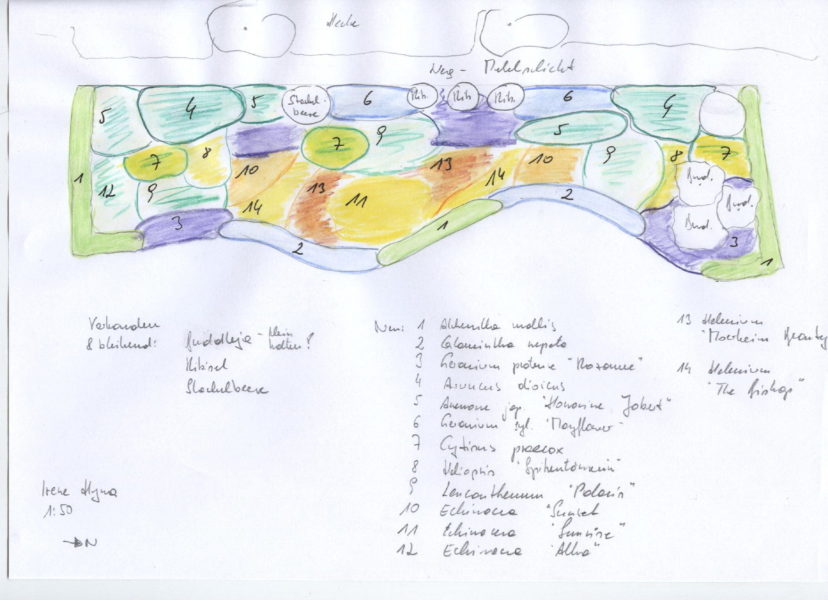 Hecke
Weg -
5
4
5
Stachel-
beere
6
Rib.
Rib.
Rib.
6
4
7
8
7
9
5
9
8
7
1
12
9
10
13
14
10
Bud.
Bud.
Bud.
14
13
11
2
3
2
1
3
1
Vorhanden
& bleibend:
Buddleja - klein
halten?
Ribisel
Stachelbeere
Neu: 1 Alchemilla mollis
2 Calamintha nepeta
3 Geranium pratense "Rozanne"
4 Aruncus dioicus
5 Anemone jap. "Honorine Jobert"
6 Geranium syl. "Mayflower"
7 Cytisus praecox
8 Heliopsis
9 Leucanthemum "Polaris"
10 Echinacea "Sunset"
11 Echinacea "Sunrise"
12 Echinacea "Alba"
13 Helenium
"Moerheim Beauty
14 Helenium
"The Bishop"
Irene
1:50
N